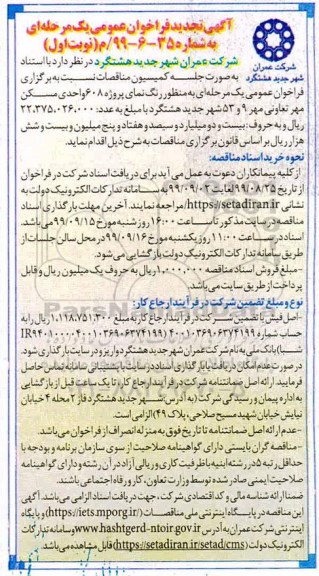 آگهی تجدید فراخوان عمومی یک مرحله‌ای
به شماره ۳۵-۶-۹۹/م (نوبت اول)
شرکت عمران
شهر جدید هشتگرد
شرکت عمران شهر جدید هشتگرد در نظر دارد با استناد
به صورت جلسه کمیسیون مناقصات نسبت به برگزاری
فراخوان عمومی یک مرحله‌ای به منظور رنگ نمای پروژه ۶۰۸ واحدی مسکن
مهر تعاونی مهر ۹ و ۵۳ شهر جدید هشتگرد با مبلغ به عدد: ۲۲،۳۷۵،۰۲۶،۰۰۰
ریال و به حروف: بیست و دو میلیارد و سیصد و هفتاد و پنج میلیون و بیست و شش
هزار ریال بر اساس قانون برگزاری مناقصات به شرح ذیل اقدام نماید.
نحوه خرید اسناد مناقصه:
از کلیه پیمانکاران دعوت به عمل می آید برای دریافت اسناد شرکت در فراخوان
از تاریخ ۹۹/۰۸/۲۵ لغایت ۹۹/۰۹/۰۲ به سامانه تدارکات الکترونیک دولت به
نشانی https://setadiran.ir مراجعه نمایند. آخرین مهلت بارگذاری اسناد
مناقصه در سایت مذکور تا ساعت ۱۶:۰۰ روز شنبه مورخ ۹۹/۰۹/۱۵ می باشد.
اسناد در ساعت ۱۱:۰۰ روز یکشنبه مورخ ۹۹/۰۹/۱۶ در محل سالن جلسات از
طریق سامانه تدارکات الکترونیک دولت بازگشایی می شود.
-مبلغ فروش اسناد مناقصه ۱،۰۰۰،۰۰۰ ریال به حروف یک میلیون ریال و قابل
پرداخت از طریق سایت می باشد.
نوع و مبلغ تضمین شرکت در فرآیند ارجاع کار:
-اصل فیش یا تضمین شرکت در فرآیند ارجاع کار به مبلغ ۱،۱۱۸،۷۵۱،۳۰۰ ریال را به
حساب شماره ۴۰۰۱۰۳۶۹۰۶۳۷۴۱۹۹
شبا) بانک ملی به نام شرکت عمران شهر جدید هشتگرد واریز و در سایت بارگذاری شود.
در صورت عدم امکان دریافت یا بارگذاری اسناد در سایت با پشتیبانی سامانه تماس حاصل
فرمایید ارائه اصل ضمانتنامه شرکت در فرآیند ارجاع کار، تا یک ساعت قبل از بازگشایی
به اداره پیمان و رسیدگی شرکت (به آدرس شهر جدید هشتگرد فاز ۲ محله ۴ خیابان
نیایش خیابان شهید مسیح صلاحی، پلاک ۴۹) الزامی است.
-عدم ارائه اصل ضمانتنامه تا تاریخ فوق به منزله انصراف از فراخوان می باشد.
-مناقصه گران بایستی دارای گواهینامه صلاحیت از سوی سازمان برنامه و بودجه با
حداقل رتبه ۵ در رشته ابنیه با ظرفیت کاری و ریالی آزاد در آن رشته و دارای گواهینامه
صلاحیت ایمنی صادر شده توسط وزارت تعاون، کار و رفاه اجتماعی باشند.
ضمناً ارائه شناسه ملی و کد اقتصادی شرکت، جهت دریافت اسناد الزامی می باشد. آگهی
این مناقصه در پایگاه اینترنتی ملی مناقصات (https://iets.mporg.ir) و پایگاه
اینترنتی شرکت عمران به آدرس www.hashtgerd-ntoir.gov.ir و سامانه تدارکات
الکترونیک دولت (https://setadiran.ir/setad/cms) قابل مشاهده می باشد.